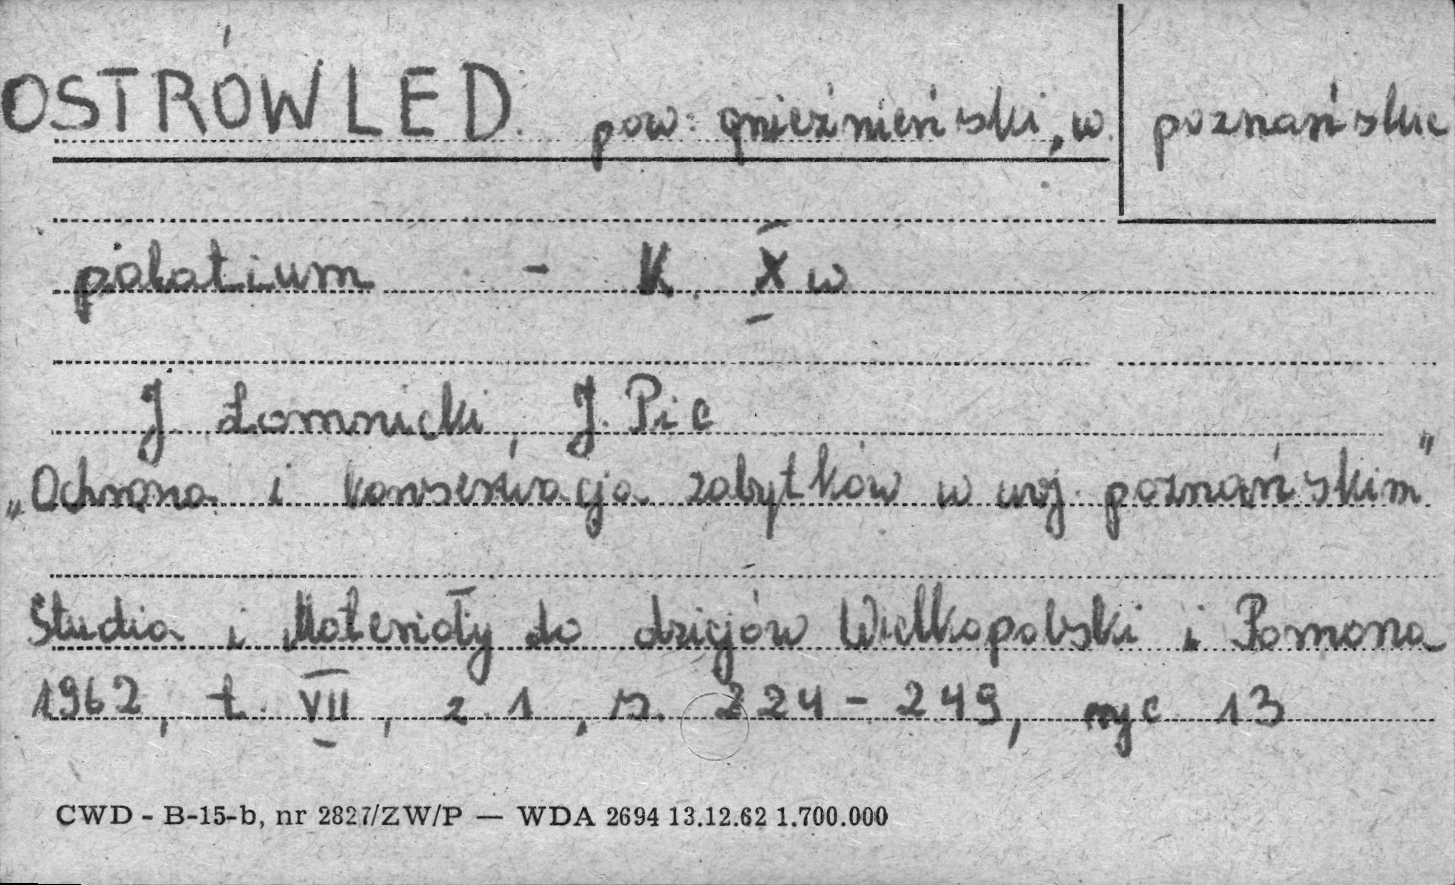 OSTRÓW LED. pow. gnieźnieński, w. poznańskie
palatium - K. X w
J. Łomnicki, J. Pic
„Ochrona i konserwacja zabytków w woj. poznańskim"
Studia i Materiały do dziejów Wielkopolski i Pomorza
1962, t. VII, z. 1, s. 224 - 249, ryc 13
CWD - B-15-b, nr 2827/ZW/P — WDA 2694 13.12.62 1.700.000